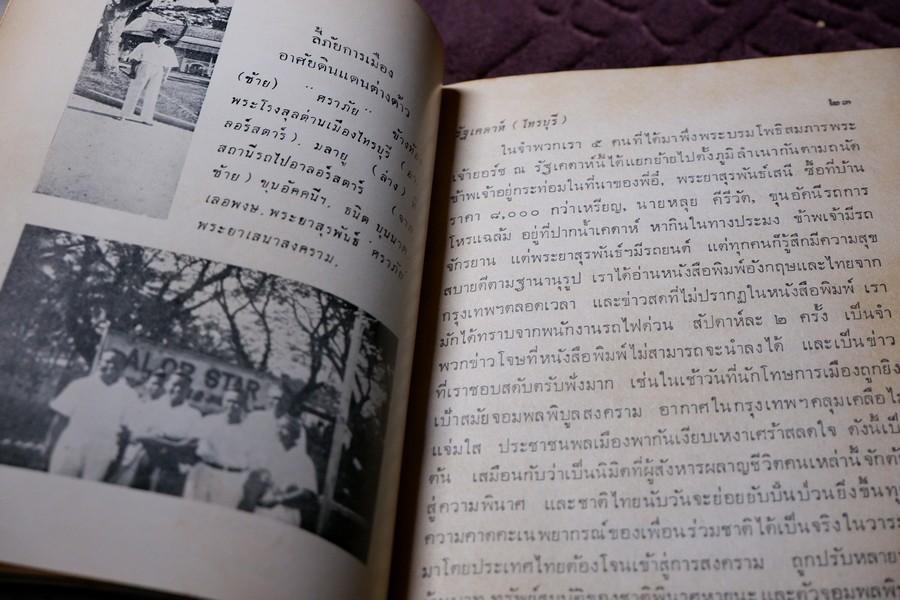 ลี้ภัยการเมือง
อาศัยดินแดนต่างด้าว
(ซ้าย) "ศราภัย" ข้าง
พระโรงสุลต่านเมืองไทรบุรี
ลอร์สตาร์). มลายู (ล่าง)
สถานีรถไปอาลอร์สตาร์ (จาก
ซ้าย) ขุนอัคคนีฯ. ธนิต บุนนาค
เลอพงษ. พระยาสุรพันธ์ "ศราภัย"
พระยาเสนาสงคราม.
ALOR STAR
๒๓
รัฐเคดาห์ (ไทรบุรี)
ในจำพวกเรา ๕ คนที่ได้มาพึ่งพระบรมโพธิสมภารพระ
เจ้ายอร์ซ ณ รัฐเคดาห์นี้ได้แยกย้ายไปตั้งภูมิลำเนากันตามถนัด
ข้าพเจ้าอยู่กระท่อมในที่นาของพี่อี๋, พระยาสุรพันธ์เสนี ซื้อที่บ้าน
ราคา ๘,๐๐๐ กว่าเหรียญ, นายหลุย คีรีวัต, ขุนอัคนีรถการ
โหรแฉล้ม อยู่ที่ปากน้ำเคดาห์ หากินในทางประมง ข้าพเจ้ามีรถ
จักรยาน แต่พระยาสุรพันธ์ฯมีรถยนต์ แต่ทุกคนก็รู้สึกมีความสุข
สบายดีตามฐานานุรูป เราได้อ่านหนังสือพิมพ์อังกฤษและไทยจาก
กรุงเทพฯตลอดเวลา และข่าวสดที่ไม่ปรากฏในหนังสือพิมพ์ เรา
มักได้ทราบจากพนักงานรถไฟด่วน สัปดาห์ละ ๒ ครั้ง เป็นจำ
พวกข่าวโจษที่หนังสือพิมพ์ไม่สามารถจะนำลงได้ และเป็นข่าว
ที่เราชอบสดับตรับฟังมาก เช่นในเช้าวันที่นักโทษการเมืองถูกยิง
เป้าสมัยจอมพลพิบูลสงคราม อากาศในกรุงเทพฯคลุมเคลือไ
แจ่มใส ประชาชนพลเมืองพากันเงียบเหงาเศร้าสลดใจ ดังนี้เป็
ต้น เสมือนกับว่าเป็นนิมิตที่ผู้สังหารผลาญชีวิตคนเหล่านี้จักต้
สู่ความพินาศ และชาติไทยนับวันจะย่อยยับปั่นป่วนยิ่งขึ้นทุ
ความคาดคะเนพยากรณ์ของเพื่อนร่วมชาติได้เป็นจริงในวาระ
มาโดยประเทศไทยต้องโจนเข้าสู่การสงคราม ถูกปรับหลาย
ทรัพย์สมบัติของชาติพินาศหายนะ และตัวจอมพลพิ